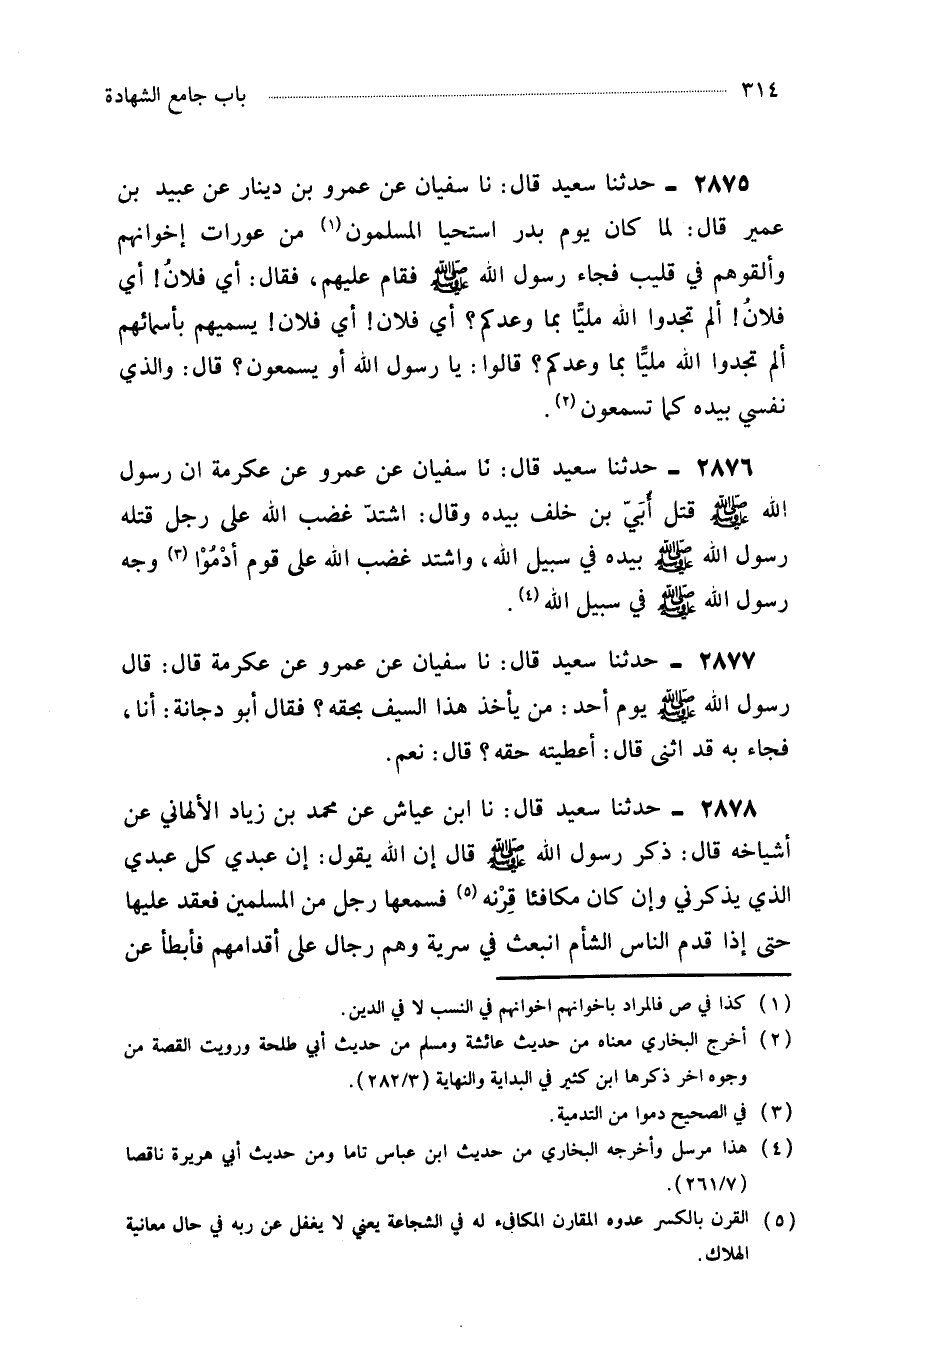 ٣١٤ باب جامع الشهادة
٢٨٧٥ ـ حدثنا سعيد قال: نا سفيان عن عمرو بن دينار عن عبيد بن
عمير قال: لما كان يوم بدر استحيا المسلمون(١) من عورات إخوانهم
وألقوهم في قليب فجاء رسول الله ﷺ فقام عليهم، فقال: أي فلانُ! أي
فلانُ! ألم تجدوا الله مليًّا بما وعدكم؟ أي فلان! أي فلان! يسميهم بأسمائهم
ألم تجدوا الله مليًّا بما وعدكم؟ قالوا: يا رسول الله أو يسمعون؟ قال: والذي
نفسي بيده كما تسمعون(٢).
٢٨٧٦ ـ حدثنا سعيد قال: نا سفيان عن عمرو عن عكرمة ان رسول
الله ﷺ قتل أُبَيّ بن خلف بيده وقال: اشتدّ غضب الله على رجل قتله
رسول الله ﷺ بيده في سبيل الله، واشتد غضب الله على قوم أدْمُوْا(٣) وجه
رسول الله ﷺ في سبيل الله(٤).
٢٨٧٧ ـ حدثنا سعيد قال: نا سفيان عن عمرو عن عكرمة قال: قال
رسول الله ﷺ يوم أحد: من يأخذ هذا السيف بحقه؟ فقال أبو دجانة: أنا،
فجاء به قد اثنى قال: أعطيته حقه؟ قال: نعم.
٢٨٧٨ ـ حدثنا سعيد قال: نا ابن عياش عن محمد بن زياد الألهاني عن
أشياخه قال: ذكر رسول الله ﷺ قال إن الله يقول: إن عبدي كل عبدي
الذي يذكرني وإن كان مكافئا قِرْنه(٥) فسمعها رجل من المسلمين فعقد عليها
حتى إذا قدم الناس الشأم انبعث في سرية وهم رجال على أقدامهم فأبطأ عن
(١) كذا في ص فالمراد باخوانهم اخوانهم في النسب لا في الدين.
(٢) أخرج البخاري معناه من حديث عائشة ومسلم من حديث أبي طلحة ورويت القصة من
وجوه اخر ذكرها ابن كثير في البداية والنهاية (٢٨٢/٣).
(٣) في الصحيح دموا من التدمية.
(٤) هذا مرسل وأخرجه البخاري من حديث ابن عباس تاما ومن حديث أبي هريرة ناقصا
(٢٦١/٧).
(٥) القرن بالكسر عدوه المقارن المكافىء له في الشجاعة يعني لا يغفل عن ربه في حال معانية
الهلاك.